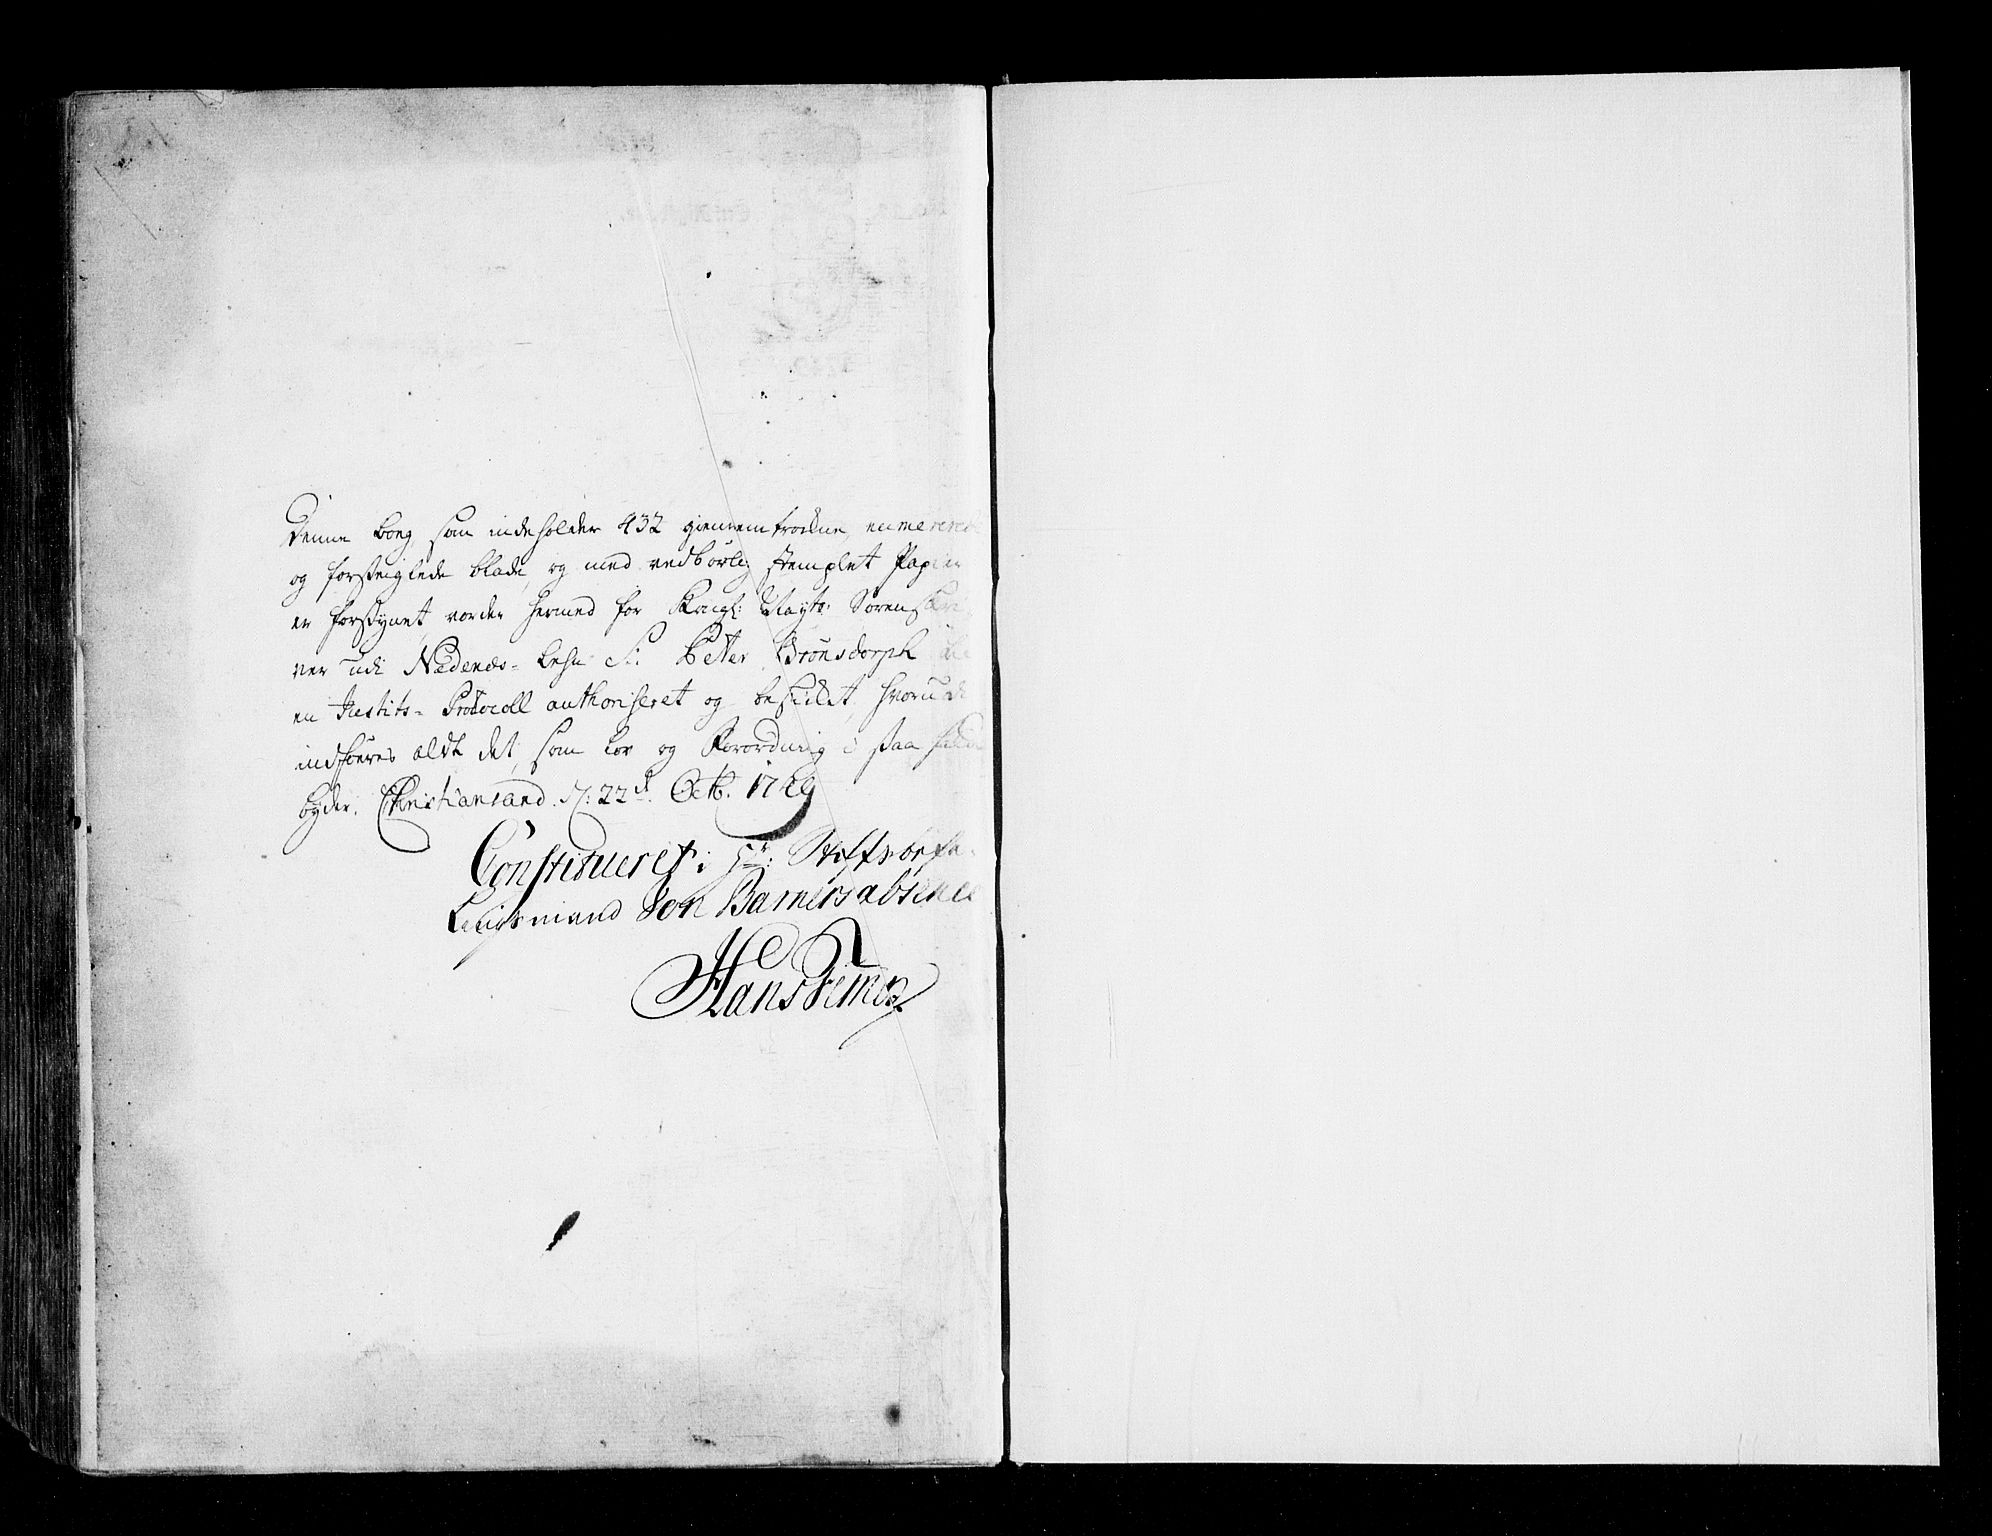 Denne bog, som indeholder 432 giennemtrokne, enumererede
og forseiglede blade, og med vedbørlig stemplet Papiir
er forsÿnet, vorder hermed for Kongl: Mayts: Sorenskri
ver udi Nedenæs-Lehn Sr: Peter Brønsdorph
en Justits-Protocoll authoriseret og beskikket, hvorudi
indføres aldt det, som Lov og Forordning i saa
byder. Christiansand d: 22d Octb. 1749
Constitueret i Hr: Stiftsbefa-
lingsmand Von Barners absence
Hans